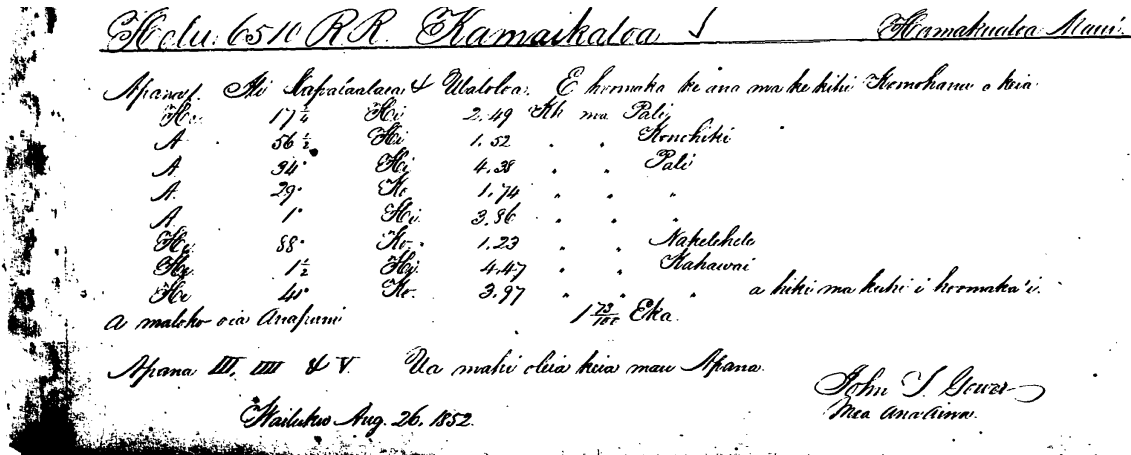 Helu. 6510 R.R. Kamaikaloa Hamakualoa Maui.
Apana 1. Ili Kapaiaalaea & Ulaloloa. E hoomaka ke ana ma ke kihi Komohana o keia
He. 17 1/4 Hi 2.49 Kh ma Pali,
A 56 1/2 Hi 1.52 " " Konohiki
A 34° Hi 4.38 " " Pali
A. 29° Ko 1.74 " " "
A. 1° Hi. 3.86 " " "
He. 88° Ko. 1.23 " " Nahelehele
He. 1 1/2 Hi. 4.47 " " Kahawai
He 45° Ko. 3.97 " " " a hiki ma kuhi i hoomaka'i.
A maloko oia Anapuni 1 73/100 Eka.
Apana III, IIII & V. Ua mahi oleia keia mau Apana.
John T. Gower
Mea ana aina.
Wailuku Aug. 26, 1852.